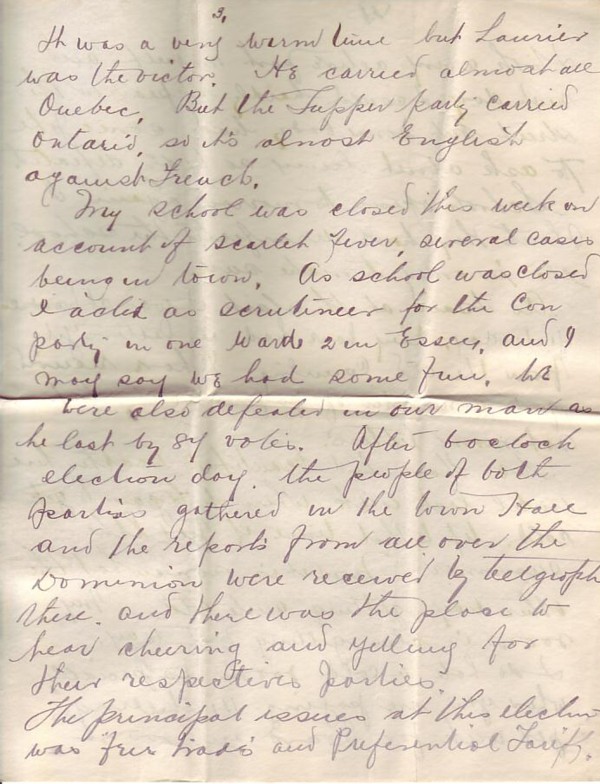 3,
It was a very warm time but Laurier
was the victor. He carried almost all
Quebec, But the Tupper party carried
Ontario, so it's almost English
against French.
My school was closed this week on
account of scarlet fever, several cases
being in town. As school was closed
I acted as scrutineer for the Con
party in one Ward 2 in Essex, and I
may say we had some fun. We
were also defeated in our man as
he lost by 84 votes. After 6 oclock
election day, the people of both
parties gathered in the Town Hall
and the reports from all over the
Dominion were received by telgraph
there. and there was the place to
hear cheering and yelling for
their respectives parties.
The principal issues at this election
was "free trade" and Preferential Tariff.